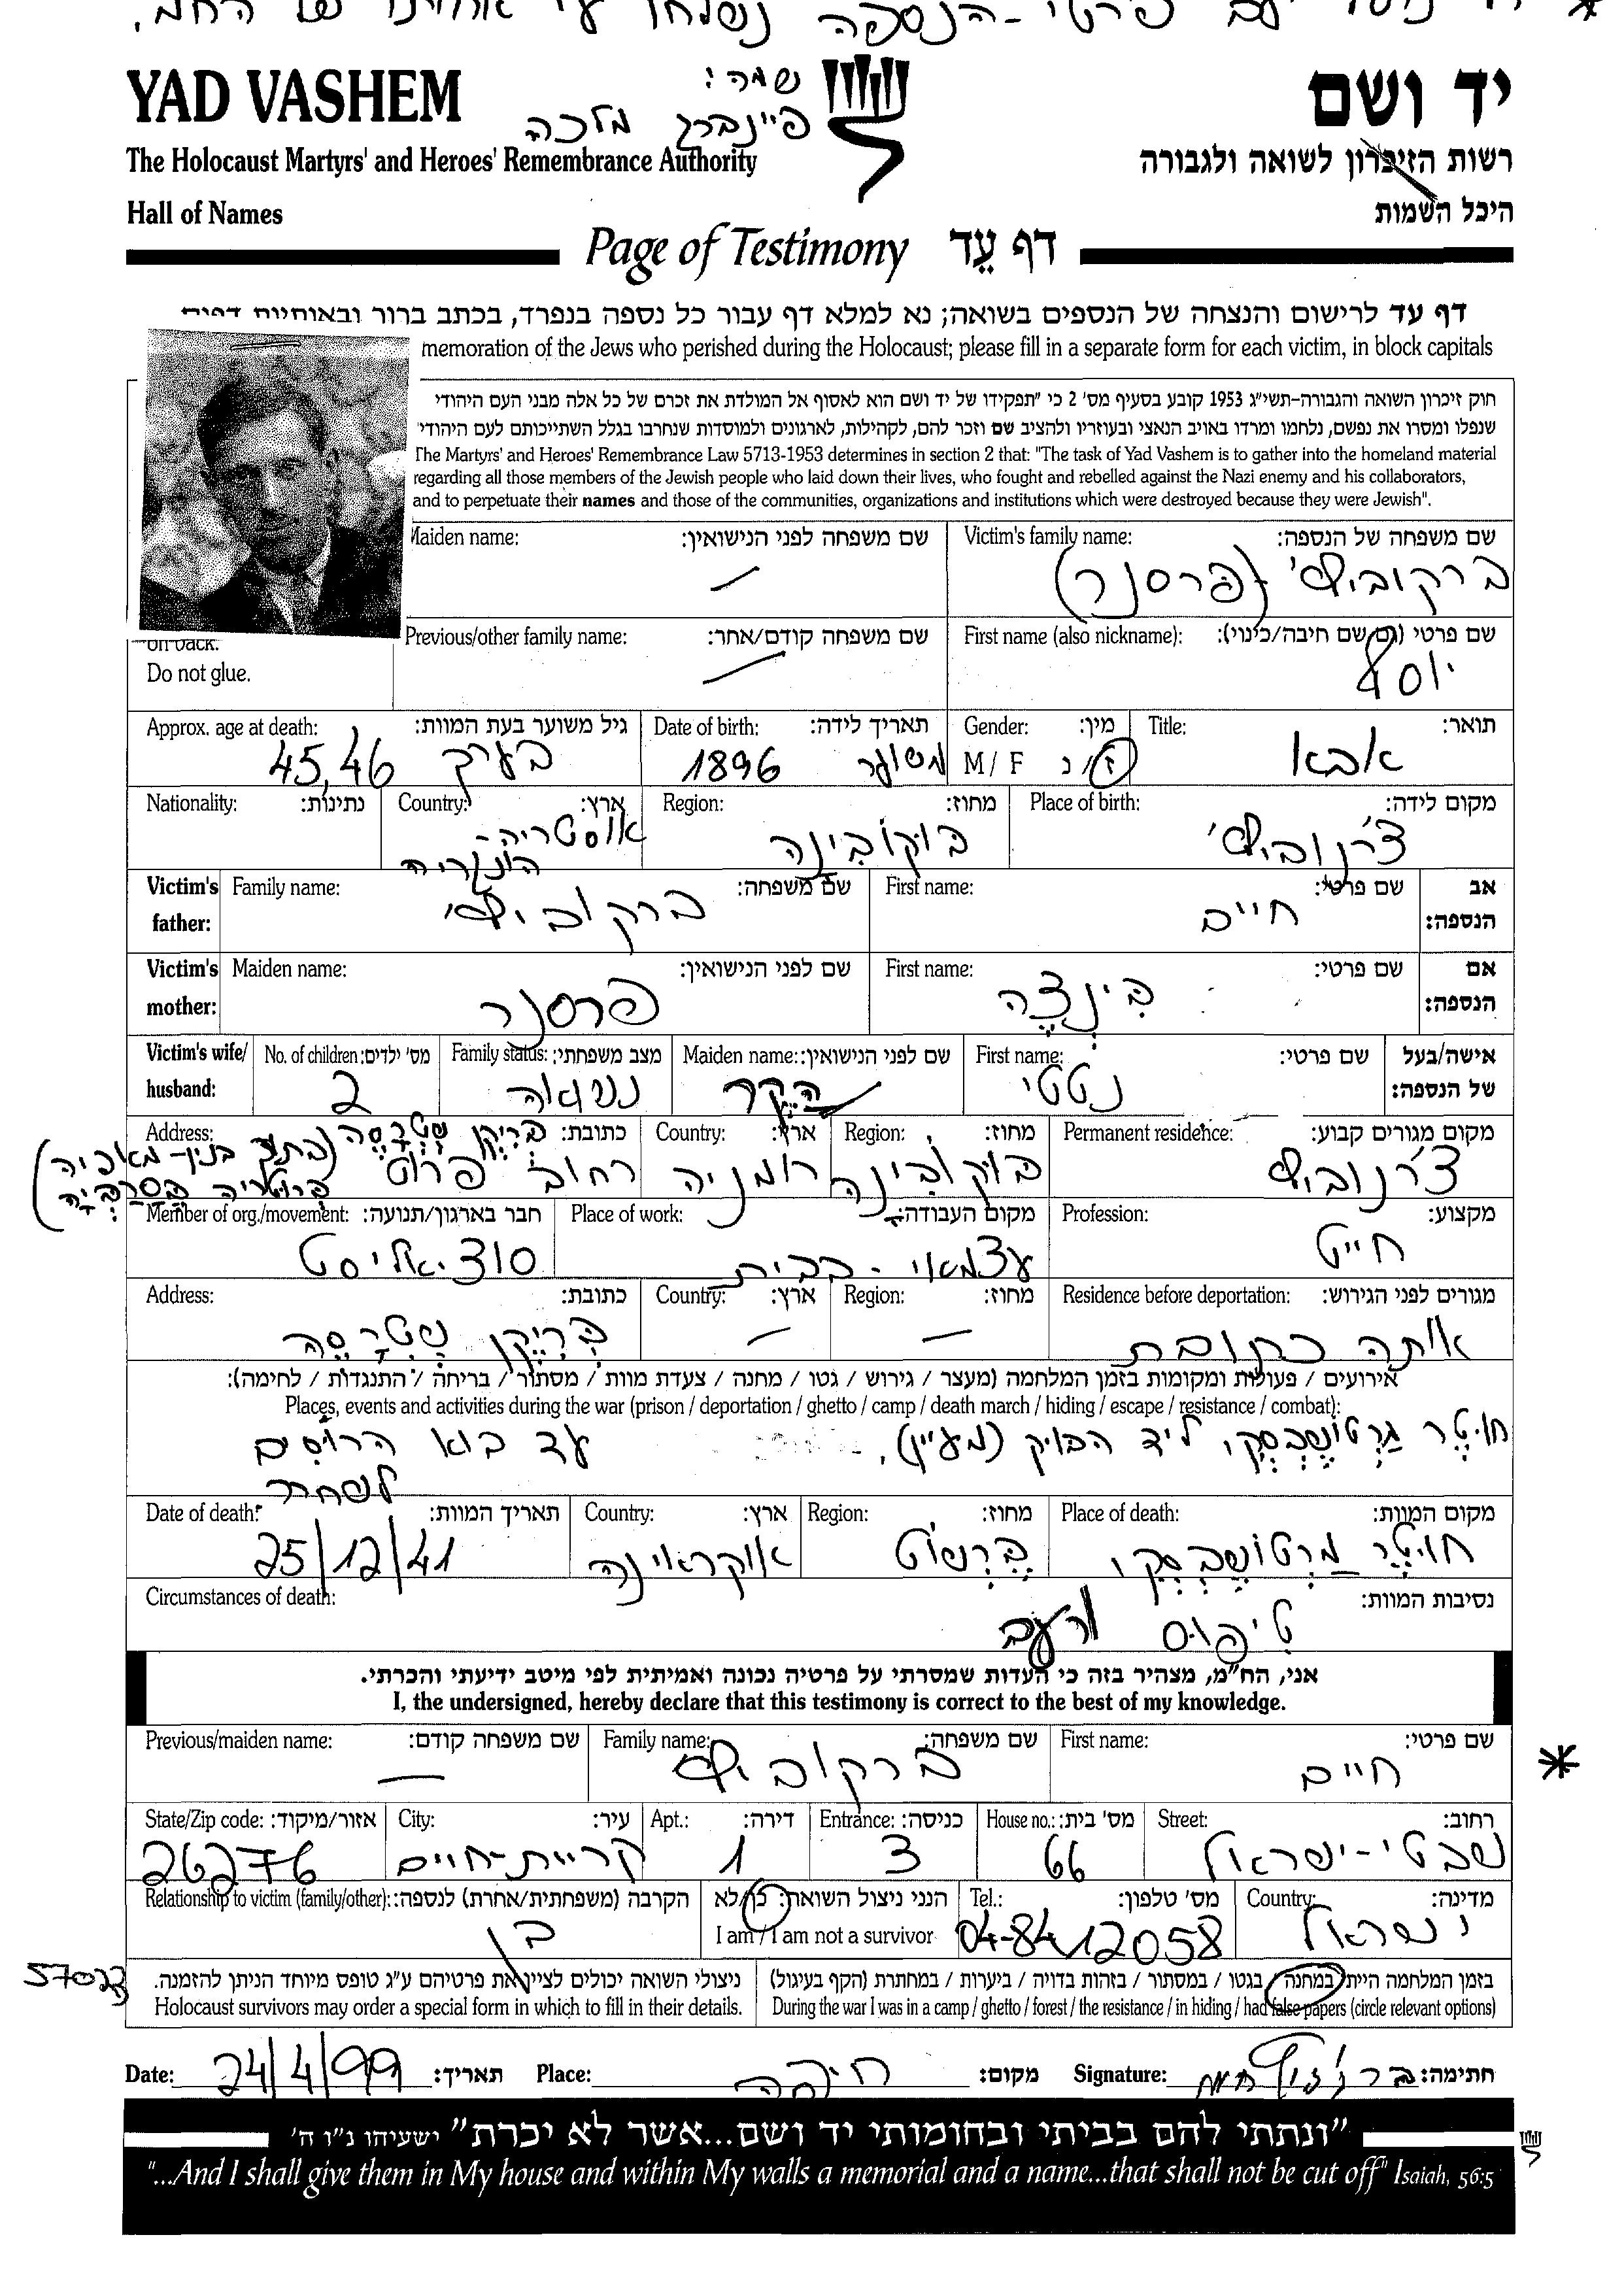 שמה:
פיינברג מלכה
YAD VASHEM
יד ושם
The Holocaust Martyrs' and Heroes' Remembrance Authority
רשות הזיכרון לשואה ולגבורה
Hall of Names
היכל השמות
Page of Testimony דף עֵד
דף עד לרישום והנצחה של הנספים בשואה; נא למלא דף עבור כל נספה בנפרד, בכתב ברור ובאותיות דפוס
memoration of the Jews who perished during the Holocaust; please fill in a separate form for each victim, in block capitals
חוק זיכרון השואה והגבורה-תשי״ג 1953 קובע בסעיף מס' 2 כי ״תפקידו של יד ושם הוא לאסוף אל המולדת את זכרם של כל אלה מבני העם היהודי
שנפלו ומסרו את נפשם, נלחמו ומרדו באויב הנאצי ובעוזריו ולהציב שם וזכר להם, לקהילות, לארגונים ולמוסדות שנחרבו בגלל השתייכותם לעם היהודי
The Martyrs' and Heroes' Remembrance Law 5713-1953 determines in section 2 that: "The task of Yad Vashem is to gather into the homeland material
regarding all those members of the Jewish people who laid down their lives, who fought and rebelled against the Nazi enemy and his collaborators,
and to perpetuate their names and those of the communities, organizations and institutions which were destroyed because they were Jewish".
שם משפחה של הנספה: Victim's family name: שם משפחה לפני הנישואין: Maiden name:
ברקוביץ' (פרסנר) —
שם פרטי (גם שם חיבה/כינוי): First name (also nickname): שם משפחה קודם/אחר: Previous/other family name:
יוסף —
on back.
Do not glue.
תואר: Title: מין: Gender: תאריך לידה: Date of birth: גיל משוער בעת המוות: Approx. age at death:
אבא ז/נ M / F משוער 1896 בערך 45,46
מקום לידה: Place of birth: מחוז: Region: ארץ: Country: נתינות: Nationality:
צ'רנוביץ' בוקובינה אוסטריה-
הונגריה
אב הנספה: שם פרטי: First name: שם משפחה: Family name: Victim's father:
חיים ברקוביץ'
אם הנספה: שם פרטי: First name: שם לפני הנישואין: Maiden name: Victim's mother:
בינצה פרסנר
אישה/בעל של הנספה: שם פרטי: First name: שם לפני הנישואין: Maiden name: מצב משפחתי: Family status: מס' ילדים: No. of children: Victim's wife/ husband:
נטטי נשואה 2
מקום מגורים קבוע: Permanent residence: מחוז: Region: ארץ: Country: כתובת: Address:
צ'רנוביץ בוקובינה רומניה רחוב פרוט
מקצוע: Profession: מקום העבודה: Place of work: חבר בארגון/תנועה: Member of org./movement:
חייט עצמאי - בבית סוציאליסט
מגורים לפני הגירוש: Residence before deportation: מחוז: Region: ארץ: Country: כתובת: Address:
אותה כתובת — —
אירועים / פעולות ומקומות בזמן המלחמה (מעצר / גירוש / גטו / מחנה / צעדת מוות / מסתור / בריחה / התנגדות / לחימה):
Places, events and activities during the war (prison / deportation / ghetto / camp / death march / hiding / escape / resistance / combat):
ליד הבוק (מעיין), עד בוא הרוסים
לשחרר
מקום המוות: Place of death: מחוז: Region: ארץ: Country: תאריך המוות: Date of death:
חוטר אוקראינה 25/12/41
נסיבות המוות: Circumstances of death:
טיפוס ורעב
אני, הח״מ, מצהיר בזה כי העדות שמסרתי על פרטיה נכונה ואמיתית לפי מיטב ידיעתי והכרתי.
I, the undersigned, hereby declare that this testimony is correct to the best of my knowledge.
שם פרטי: First name: שם משפחה: Family name: שם משפחה קודם: Previous/maiden name:
חיים ברקוביץ —
רחוב: Street: מס' בית: House no.: כניסה: Entrance: דירה: Apt.: עיר: City: אזור/מיקוד: State/Zip code:
שבטי-ישראל 66 3 1 קריית-חיים 26276
מדינה: Country: מס' טלפון: Tel.: הנני ניצול השואה: כן/לא הקרבה (משפחתית/אחרת) לנספה: Relationship to victim (family/other):
ישראל 04-8412058 I am / I am not a survivor בן
בזמן המלחמה הייתי במחנה / בגטו / במסתור / בזהות בדויה / ביערות / במחתרת (הקף בעיגול) ניצולי השואה יכולים לציין את פרטיהם ע״ג טופס מיוחד הניתן להזמנה.
During the war I was in a camp / ghetto / forest / the resistance / in hiding / had false papers (circle relevant options) Holocaust survivors may order a special form in which to fill in their details.
חתימה: Signature: מקום: חיפה Place: תאריך: 24/4/99 Date:
״ונתתי להם בביתי ובחומותי יד ושם...אשר לא יכרת״ ישעיהו נ״ו ה'
"...And I shall give them in My house and within My walls a memorial and a name...that shall not be cut off" Isaiah, 56:5